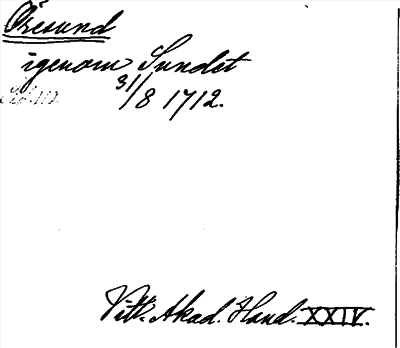 Öresund
igenom Sundet
31/8 1712.
Vitt. Akad. Hand. XXIV.